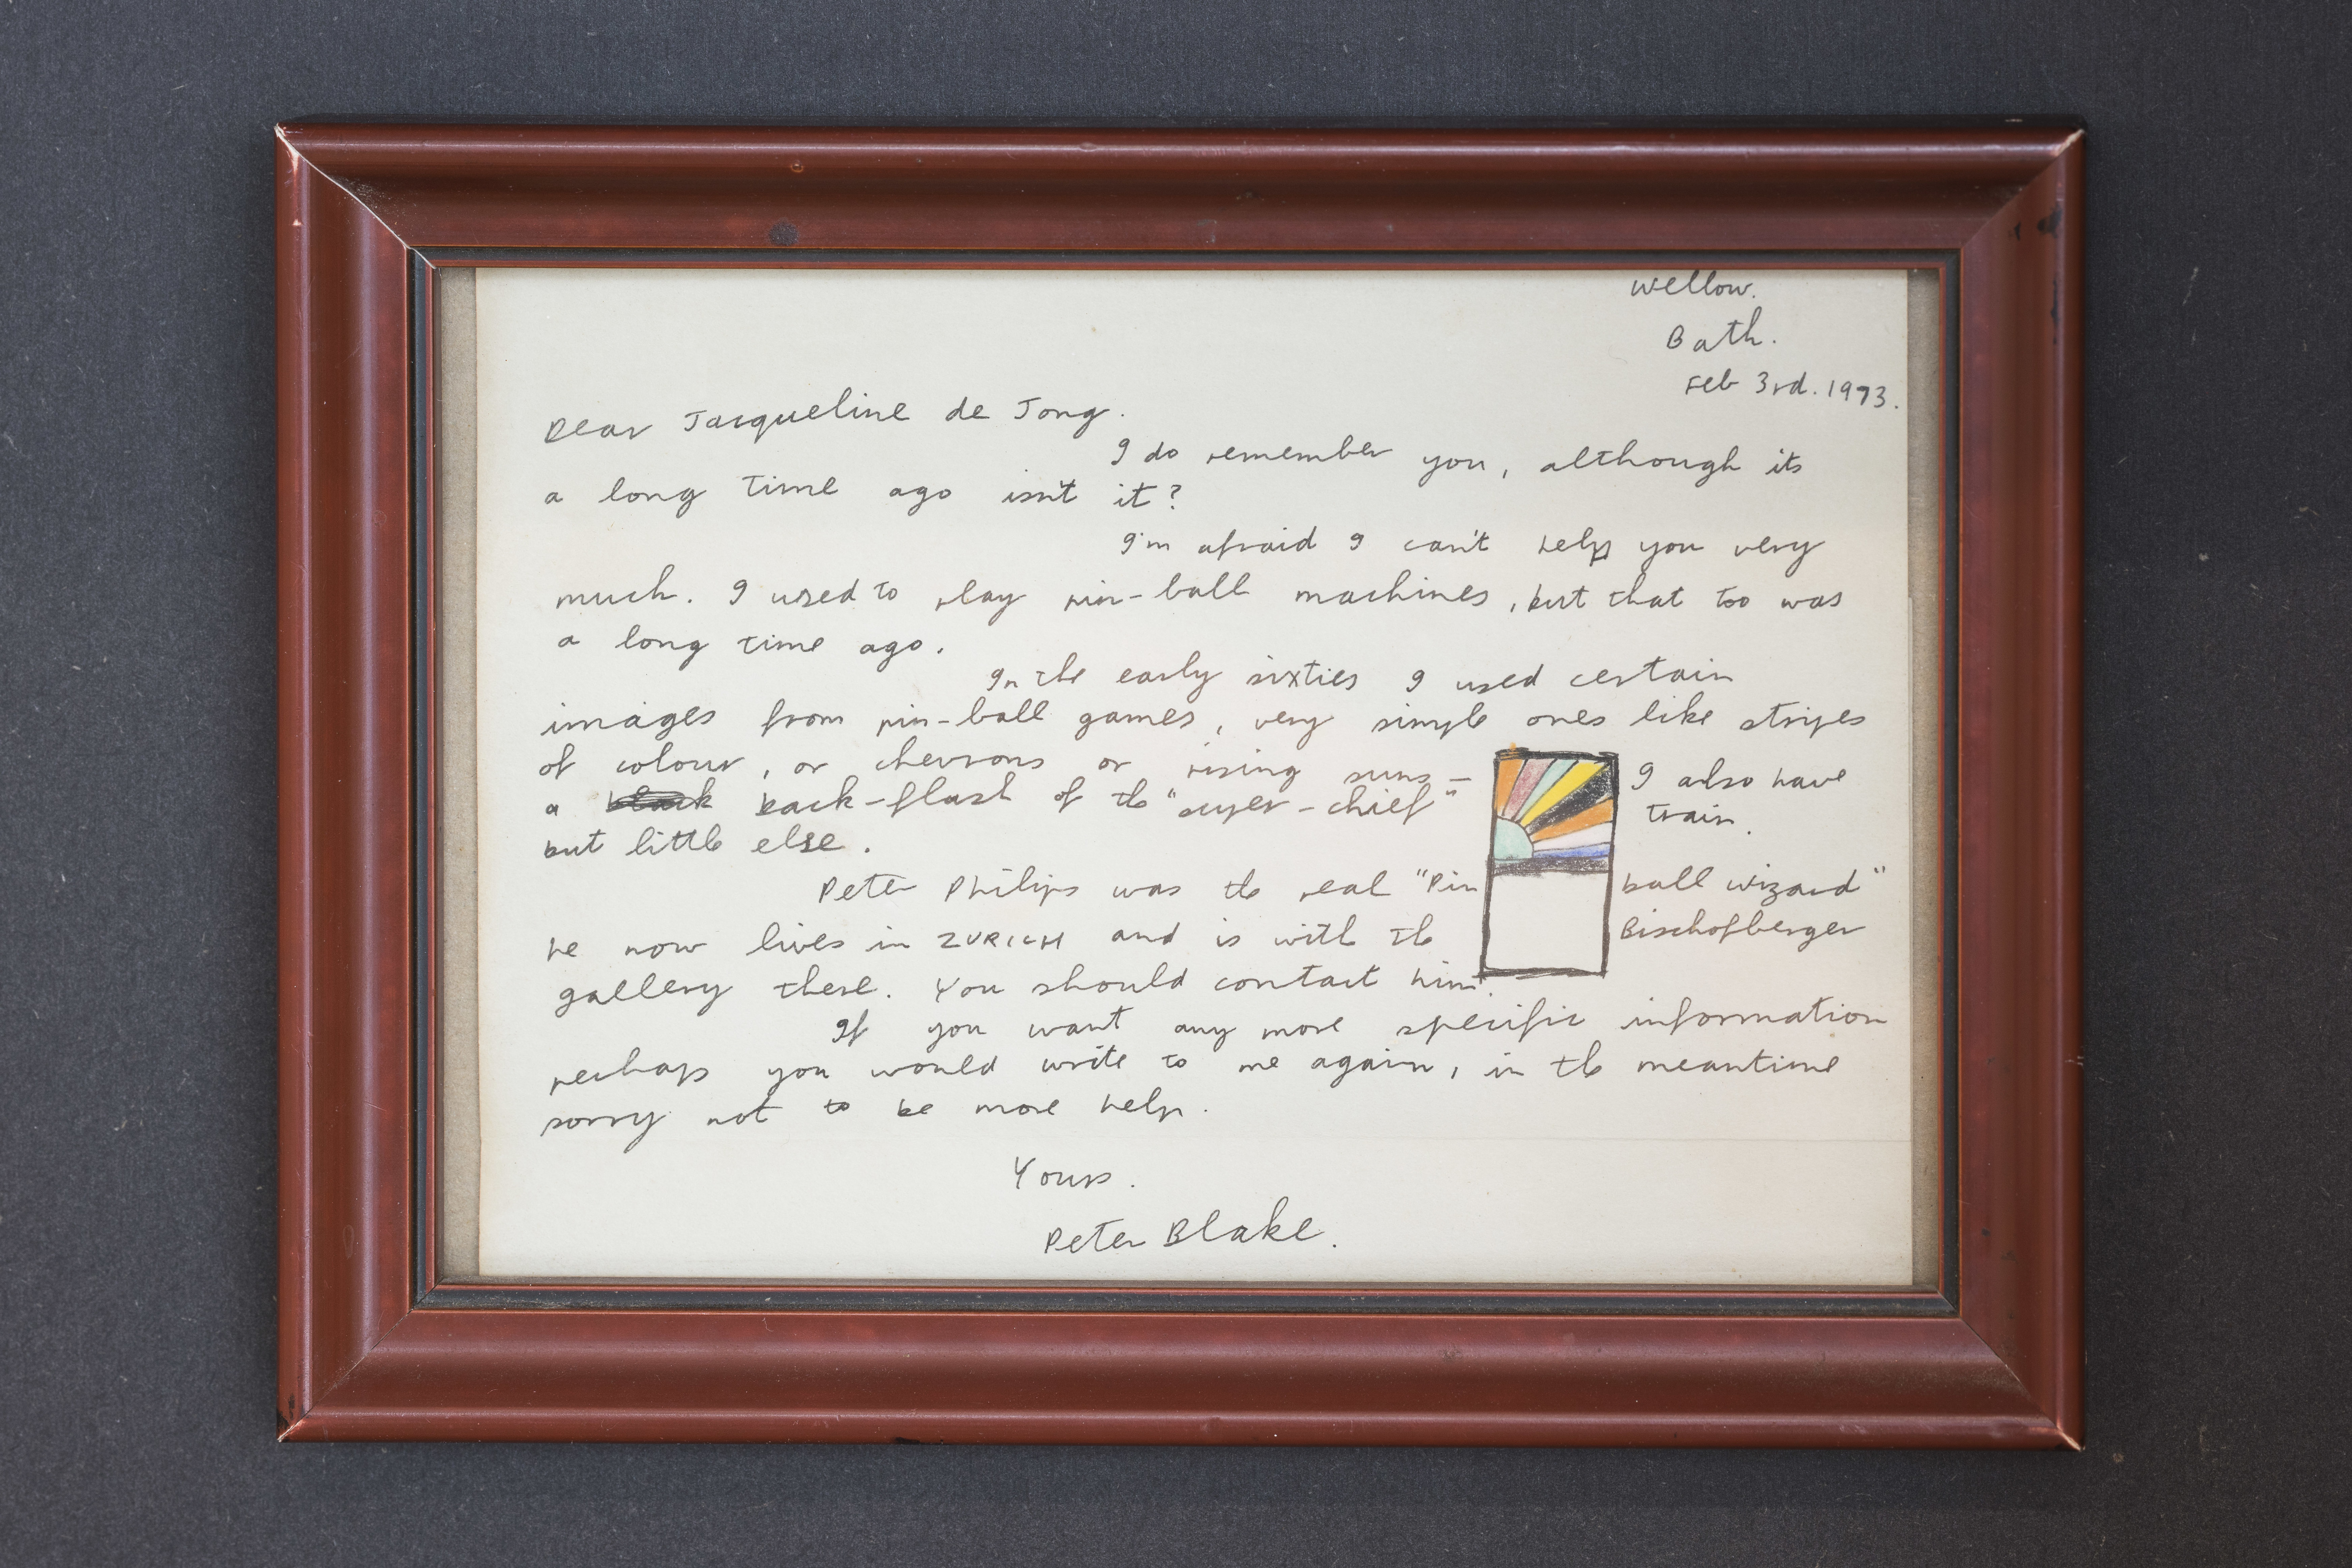 Wellow.
Bath.
Feb 3rd. 1973.
Dear Jacqueline de Jong.
I do remember you, although its
a long time ago isn't it?
I'm afraid I can't help you very
much. I used to play pin-ball machines, but that too was
a long time ago.
In the early sixties I used certain
images from pin-ball games, very simple ones like stripes
of colour, or chevrons or rising suns – I also have
a black back-flash of the "super-chief" train.
but little else.
Peter Philips was the real "Pin ball wizard"
he now lives in ZURICH and is with the Bischofberger
gallery there. You should contact him.
If you want any more specific information
perhaps you would write to me again, in the meantime
sorry not to be more help.
Yours.
Peter Blake.